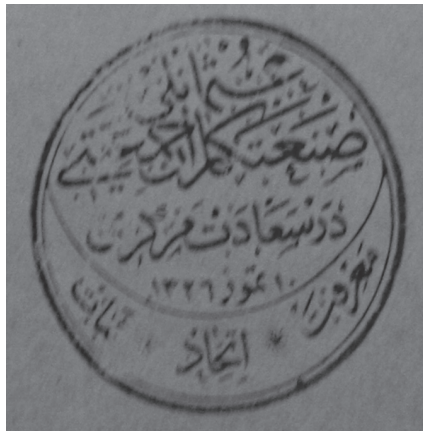 عثمانلی
صنعتکاران جمعیتی
درسعادت مرکزی
١٠ تموز ١٣٢٦
معرفت * اتحاد * ثبات